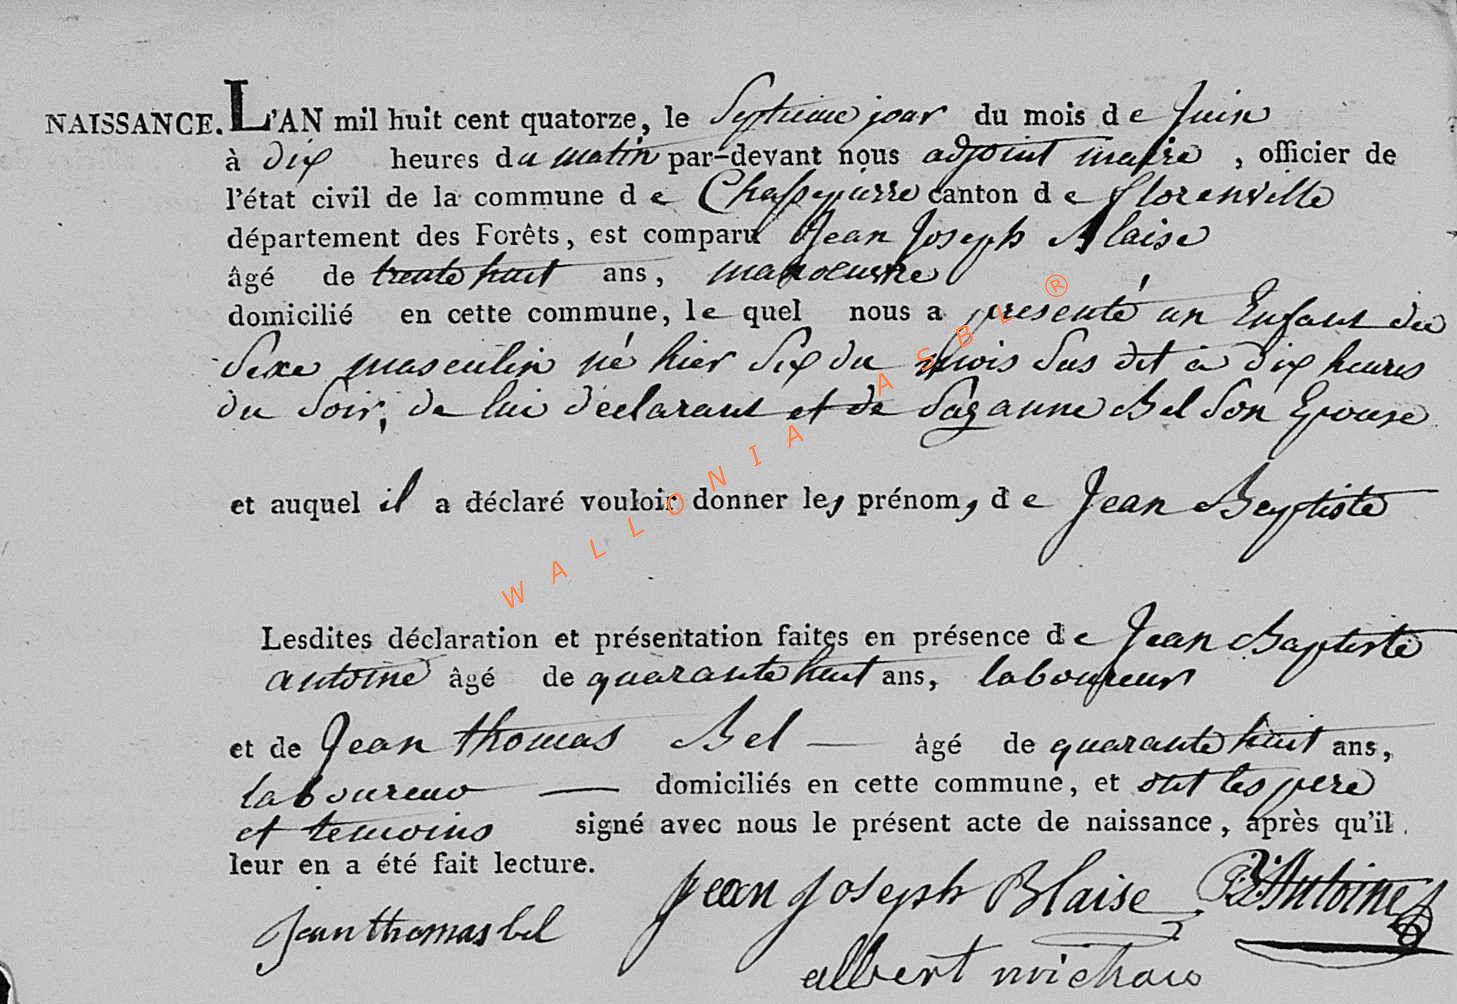 NAISSANCE. L'AN mil huit cent quatorze, le Septieme jour du mois de Juin
à dix heures du matin par-devant nous adjoint maire , officier de
l'état civil de la commune de Chassepierre canton de florenville
département des Forêts, est comparu Jean Joseph Blaise
âgé de trente huit ans, manoeuvre
domicilié en cette commune, le quel nous a presenté un Enfant du
Sexe masculin né hier Six du mois Sus dit a dix heures
du Soir, de lui déclarant et de Sazanne Bel Son Epouse
et auquel il a déclaré vouloir donner les prénoms de Jean Baptiste
Lesdites déclaration et présentation faites en présence de Jean Baptiste
antoine âgé de quarante huit ans, laboureur
et de Jean thomas Bel — âgé de quarante huit ans,
laboureur — domiciliés en cette commune, et ont les pere
et temoins signé avec nous le présent acte de naissance, après qu'il
leur en a été fait lecture.
Jean Joseph Blaise JB Antoine
Jean thomas bel
albert michaux
WALLONIA ASBL ®